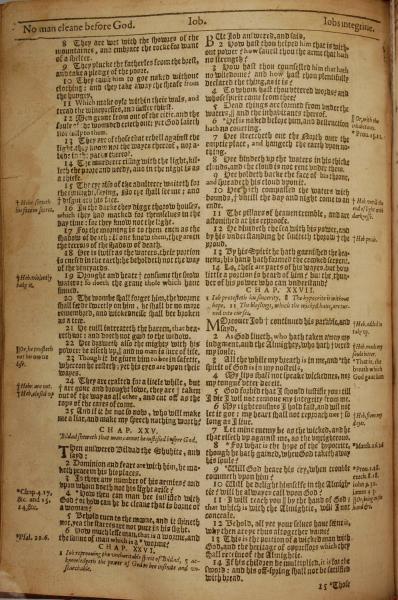 No man cleane before God.
Iob.
Iobs integritie.
8 They are wet with the showres of the
mountaines, and embrace the rocke for want
of a shelter.
9 They plucke the fatherlesse from the brest,
and take a pledge of the poore.
10 They cause him to goe naked without
clothing: and they take away the sheafe from
the hungry,
11 Which make oyle within their wals, and
tread their winepresses, and suffer thirst.
12 Men grone from out of the citie, and the
soule of the wounded crieth out: yet God layeth
not folly to them.
13 They are of those that rebell against the
light, they know not the wayes thereof, nor a-
bide in the pathes thereof.
14 The murderer rising with the light, kil-
leth the poore and needy, and in the night is as
a thiefe.
15 The eye also of the adulterer waiteth for
the twilight, saying, No eye shall see me: and
disguiseth his face.
16 In the darke they digge through houses,
which they had marked for themselues in the
day time: they know not the light.
17 For the morning is to them euen as the
shadow of death: if one know them, they are in
the terrors of the shadow of death.
18 He is swift as the waters, their portion
is cursed in the earth: he beholdeth not the way
of the vineyards.
19 Drought and heate consume the snow
waters: so doeth the graue those which haue
sinned.
20 The wombe shall forget him, the worme
shall feede sweetly on him, he shall be no more
remembred, and wickednesse shall be broken
as a tree.
21 He euill intreateth the barren, that bea-
reth not: and doeth not good to the widow.
22 He draweth also the mighty with his
power: he riseth vp, and no man is sure of life.
23 Though it be giuen him to be in safetie,
whereon he resteth; yet his eyes are vpon their
wayes.
24 They are exalted for a little while, but
are gone and brought low, they are taken
out of the way as all other, and cut off as the
tops of the eares of corne.
25 And if it be not so now, who will make
me a liar, and make my speech nothing worth?
CHAP. XXV.
Bildad sheweth that man cannot be iustified before God.
Then answered Bildad the Shuhite, and
sayd:
2 Dominion and feare are with him, he ma-
keth peace in his high places.
3 Is there any number of his armies? and
vpon whom doeth not his light arise?
4 How then can man bee iustified with
God? or how can he be cleane that is borne of
a woman?
5 Behold euen to the moone, and it shineth
not, yea the starres are not pure in his sight.
6 How much lesse man, that is a worme, and
the sonne of man which is a worme?
CHAP. XXVI.
1 Iob reproouing the vncharitable spirit of Bildad, 5 ac-
knowledgeth the power of God to be infinite and vn-
searchable.
But Iob answered, and said,
2 How hast thou helped him that is with-
out power? how sauest thou the arme that hath
no strength?
3 How hast thou counselled him that hath
no wisedome? and how hast thou plentifully
declared the thing, as it is?
4 To whom hast thou vttered words? and
whose spirit came from thee?
5 Dead things are formed from vnder the
waters, and the inhabitants thereof.
6 Hell is naked before him, and destruction
hath no couering.
7 He stretcheth out the North ouer the
emptie place, and hangeth the earth vpon no-
thing.
8 He bindeth vp the waters in his thicke
clouds, and the cloud is not rent vnder them.
9 He holdeth backe the face of his throne,
and spreadeth his cloud vpon it.
10 He hath compassed the waters with
bounds, vntill the day and night come to an
end.
11 The pillars of heauen tremble, and are
astonished at his reproofe.
12 He diuideth the sea with his power, and
by his vnderstanding he smiteth through the
proud.
13 By his Spirit he hath garnished the hea-
uens; his hand hath formed the crooked serpent.
14 Lo, these are parts of his wayes, but how
little a portion is heard of him? but the thun-
der of his power who can vnderstand?
CHAP. XXVII.
1 Iob protesteth his sincerity. 8 The hypocrite is without
hope. 11 The blessings, which the wicked haue, are tur-
ned into curses.
Moreouer Iob continued his parable, and
sayd,
2 As God liueth, who hath taken away my
iudgement, and the Almighty, who hath vexed
my soule;
3 All the while my breath is in me, and the
spirit of God is in my nostrils;
4 My lips shall not speake wickednes, nor
my tongue vtter deceit.
5 God forbid that I should iustifie you: till
I die I will not remoue my integrity from me.
6 My righteousnes I hold fast, and will not
let it goe: my heart shall not reproch me so
long as I liue.
7 Let mine enemy be as the wicked, and he
that riseth vp against me, as the vnrighteous.
8 For what is the hope of the hypocrite,
though he hath gained, when God taketh away
his soule?
9 Will God heare his cry, when trouble
commeth vpon him?
10 Will he delight himselfe in the Almigh-
tie? will he alwayes call vpon God?
11 I will teach you by the hand of God:
that which is with the Almightie, will I not
conceale.
12 Behold, all yee your selues haue seene it,
why then are ye thus altogether vaine?
13 This is the portion of a wicked man with
God, and the heritage of oppressors which they
shall receiue of the Almightie.
14 If his children be multiplied, it is for the
sword: and his off-spring shall not be satisfied
with bread.
15 Those